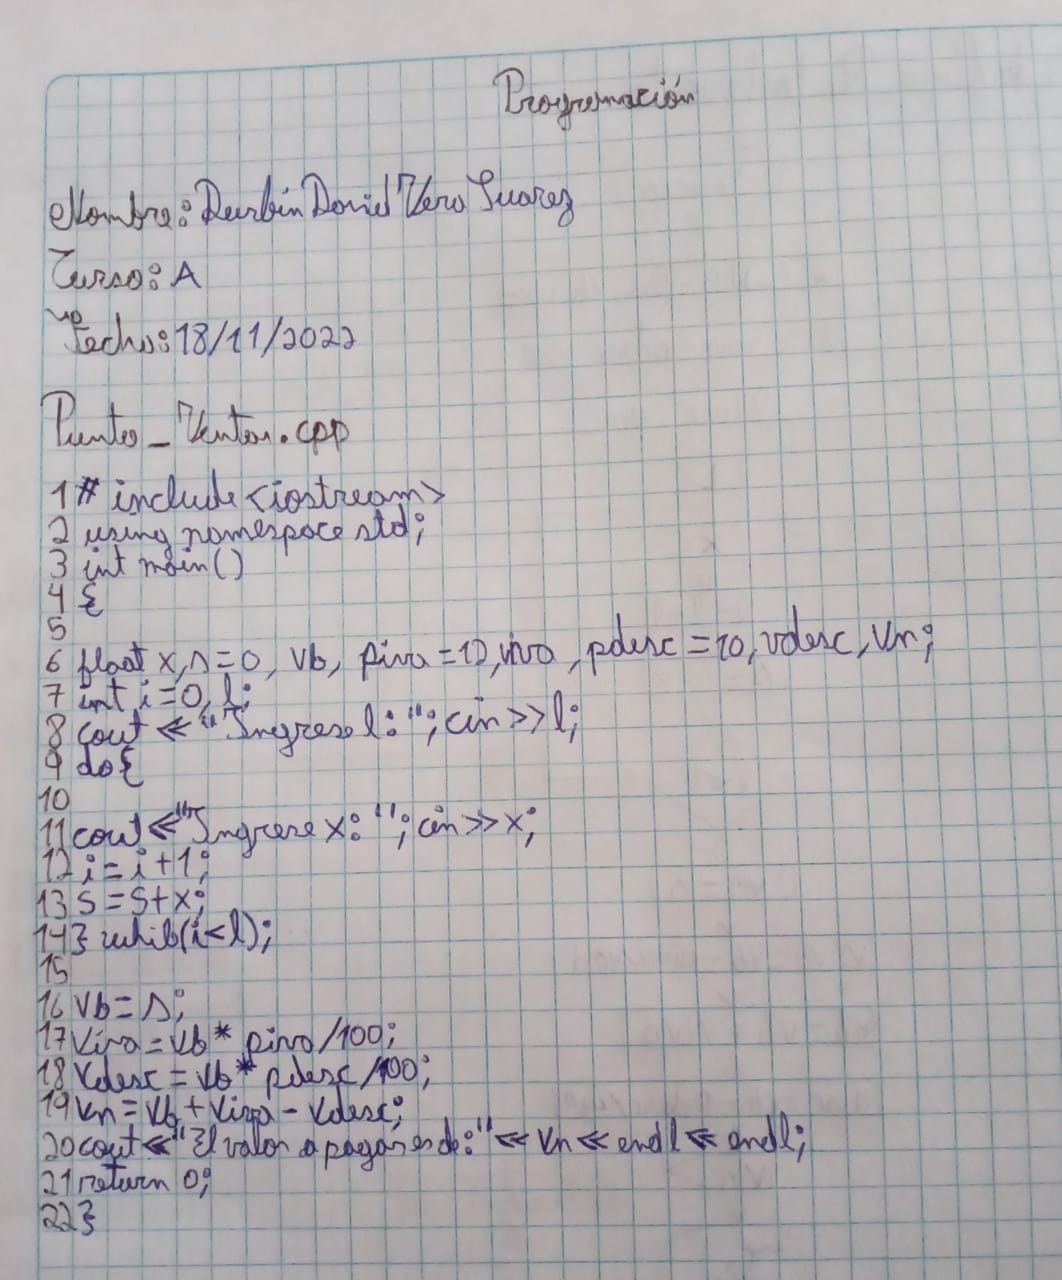 Programación
Nombre: Durbin Daniel Vera Suarez
Curso: A
Fecha: 18/11/2022
Punto_Venta.cpp
1 # include <iostream>
2 using namespace std;
3 int main()
4 {
5
6 float x, s=0, vb, piva =12, viva, pdesc =10, vdesc, vn;
7 int i=0, l;
8 cout << "Ingrese l: "; cin >> l;
9 do{
10
11 cout << "Ingrese x: "; cin >> x;
12 i = i +1;
13 s = s+x;
14 } while(i<l);
15
16 vb = s;
17 viva = vb * piva /100;
18 vdesc = vb * pdesc /100;
19 vn = vb + viva - vdesc;
20 cout << "El valor a pagar es de: " << vn << endl << endl;
21 return 0;
22 }